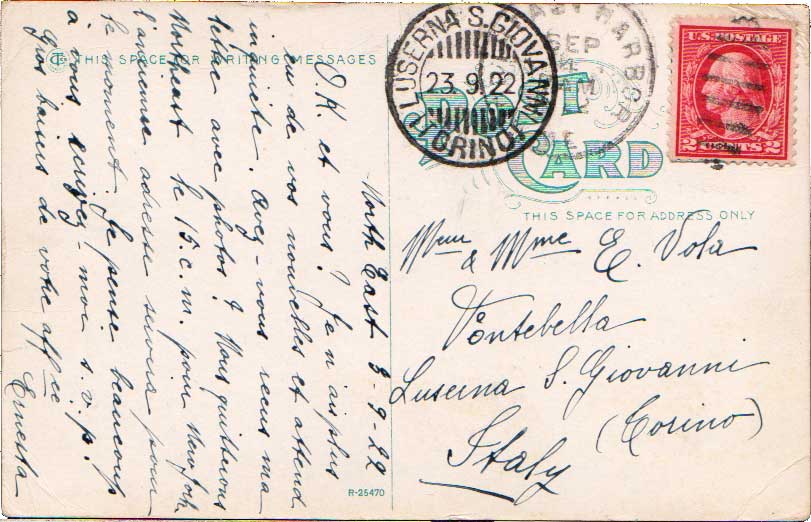 THIS SPACE FOR WRITING MESSAGES
North East 3-9-22
O.K. et vous? Je n'ai plus
eu de vos nouvelles et attend
inquiète. Avez-vous reçus ma
lettre avec photos? Nous quitterons
Northeast le 15.c.m. pour New York
l'ancienne adresse suivra pour
le moment. Je pense beaucoup
à vous écrivez-moi s.v.p.
Gros baisers de votre aff.ée
Ernesta
R-25470
LUSERNA S. GIOVANNI
23.9.22
(TORINO)
HARBOR
SEP
AM
ME.
U.S. POSTAGE
2 CENTS 2
POST
CARD
THIS SPACE FOR ADDRESS ONLY
& Mme E. Vola
Pontebella
Luserna S. Giovanni
(Torino)
Italy